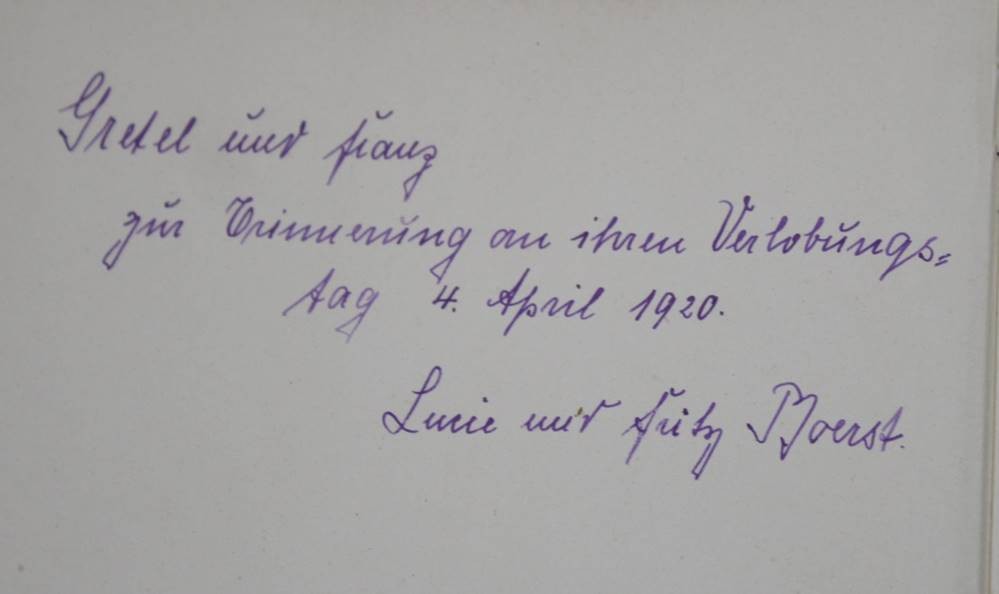 Gretel und Franz
zur Erinnerung an ihren Verlobungs=
tag 4. April 1920.
Lucie und Fritz Boerst.